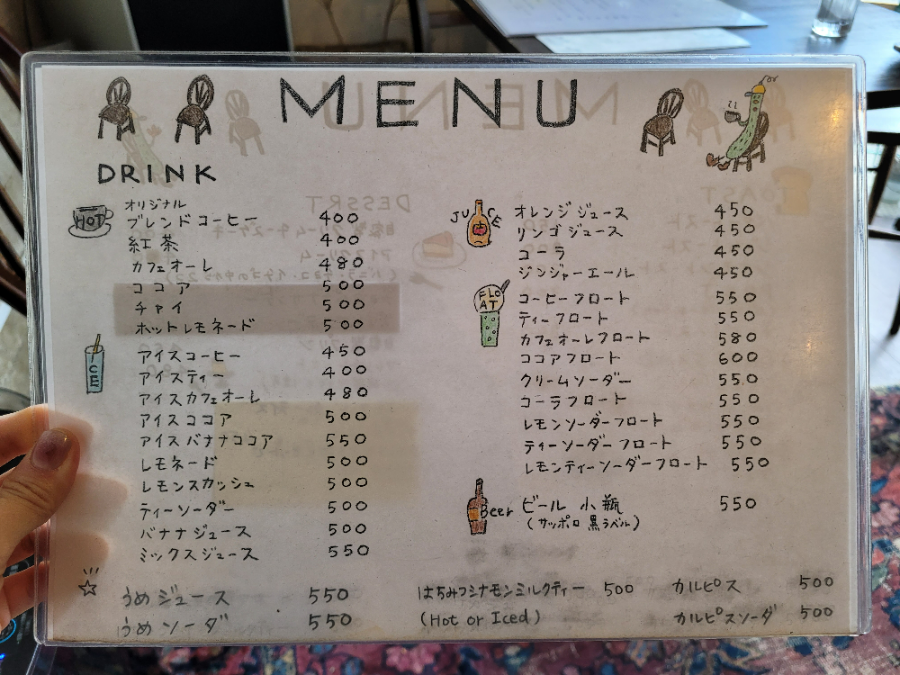 MENU
or
DRINK
HOT
オリジナル
ブレンドコーヒー 400
紅茶 400
カフェオーレ 480
ココア 500
チャイ 500
ホットレモネード 500
ICE
アイスコーヒー 450
アイスティー 400
アイスカフェオーレ 480
アイスココア 500
アイスバナナココア 550
レモネード 500
レモンスカッシュ 500
ティーソーダー 500
バナナジュース 500
ミックスジュース 550
うめジュース 550
うめソーダ 550
JUICE
オレンジジュース 450
リンゴジュース 450
コーラ 450
ジンジャーエール 450
FLOAT
コーヒーフロート 550
ティーフロート 550
カフェオーレフロート 580
ココアフロート 600
クリームソーダー 550
コーラフロート 550
レモンソーダーフロート 550
ティーソーダーフロート 550
レモンティーソーダーフロート 550
Beer ビール 小瓶 550
(サッポロ 黒ラベル)
はちみつシナモンミルクティー 500
(Hot or Iced)
カルピス 500
カルピスソーダ 500